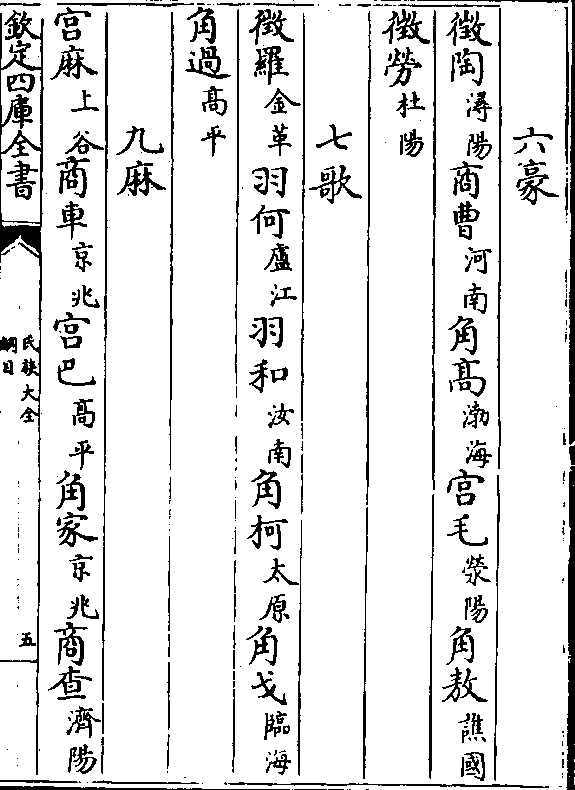 六豪
徵陶潯陽商曹河南角髙渤海宫毛滎陽角敖譙國
徵勞杜陽
七歌
徵羅金革羽何廬江羽和汝南角柯太原角戈臨海
角過髙平
九麻
宫麻上谷商車京兆宫巴髙平角家京兆商查濟陽
欽定四庫全書
氏族大全
綱目
五